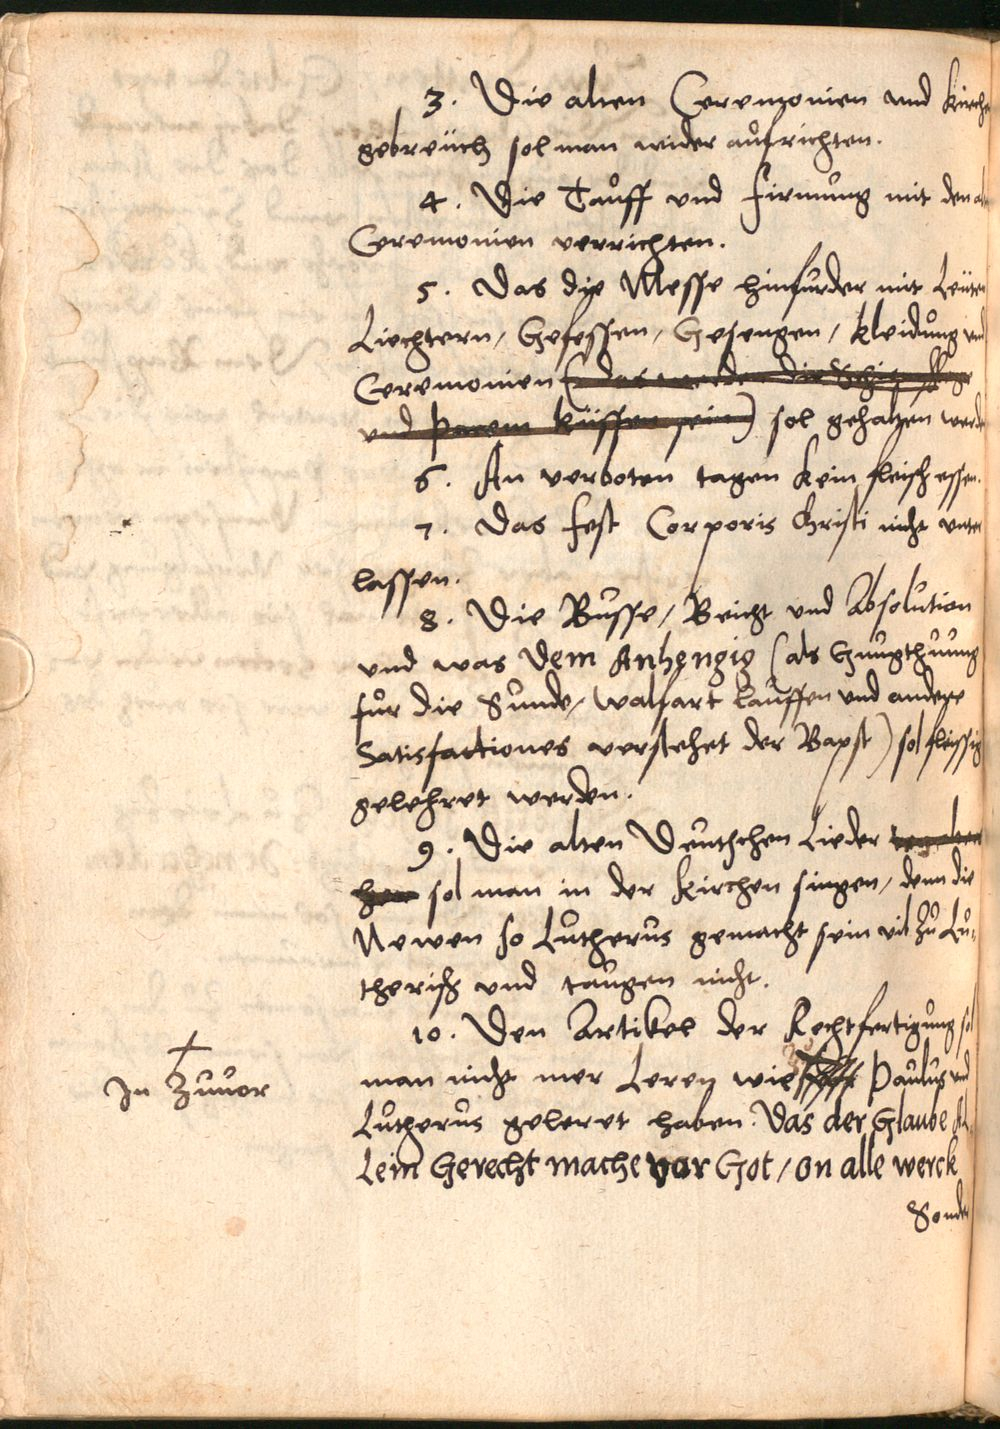 3. Die alten Ceremonien und Kirche
gebreüch sol man wider aufrichten.
4. Die Tauff und firmung mit den al
Ceremonien verrichten.
5. Das die Messe hinfurder mit Leüten
Liechtern / Gefessen / Gesengen / Kleidung und
Ceremonien (das werden die
und Pacem küssen sein) sol gehalten werde
6. An verboten tagen kein fleisch essen.
7. Das fest Corporis Christi nicht unter
lassen.
8. Die Busse / Beicht und Absolution
und was dem Anhengig (als Gnugthuung
für die Sunde / walfart lauffen und andere
Satisfactiones verstehet der Bapst) sol fleissig
gelehret werden.
9. Die alten Deutschen Lieder
sol man in der Kirchen singen / denn die
Newen so Lutherus gemacht sein vil zu Lu-
therisch und taugen nicht.
10. Den Artikel der Rechtfertigung sol
man nicht mer Leren wie Paulus und
Lutherus geleret haben. Das der Glaube Al
Lein Gerecht mache vor Got / on alle werck
Sonder
In Zuuor